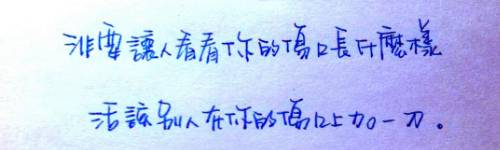 非要讓人看看你的傷口長什麼樣
活該別人在你的傷口上加一刀。